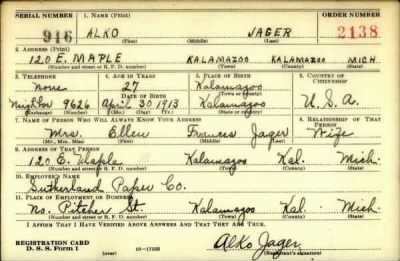 SERIAL NUMBER 1. NAME (Print) ORDER NUMBER
916 ALKO JAGER 2138
(First) (Middle) (Last)
2. ADDRESS (Print)
120 E. MAPLE KALAMAZOO KALAMAZOO MICH.
(Number and street or R. F. D. number) (Town) (County) (State)
3. TELEPHONE 4. AGE IN YEARS 5. PLACE OF BIRTH 6. COUNTRY OF CITIZENSHIP
None 27 Kalamazoo
DATE OF BIRTH (Town or county)
Neighbor 9626 April 30 1913 Kalamazoo U.S.A.
(Exchange) (Number) (Mo.) (Day) (Yr.) (State or country)
7. NAME OF PERSON WHO WILL ALWAYS KNOW YOUR ADDRESS 8. RELATIONSHIP OF THAT PERSON
Mrs. Ellen Frances Jager Wife
(Mr., Mrs., Miss) (First) (Middle) (Last)
9. ADDRESS OF THAT PERSON
120 E. Maple Kalamazoo Kal. Mich.
(Number and street or R. F. D. number) (Town) (County) (State)
10. EMPLOYER'S NAME
Sutherland Paper Co.
11. PLACE OF EMPLOYMENT OR BUSINESS
No. Pitcher St. Kalamazoo Kal. Mich.
(Number and street or R. F. D. number) (Town) (County) (State)
I AFFIRM THAT I HAVE VERIFIED ABOVE ANSWERS AND THAT THEY ARE TRUE.
REGISTRATION CARD
D. S. S. Form 1 (over) 16—17105 Alko Jager
(Registrant's signature)